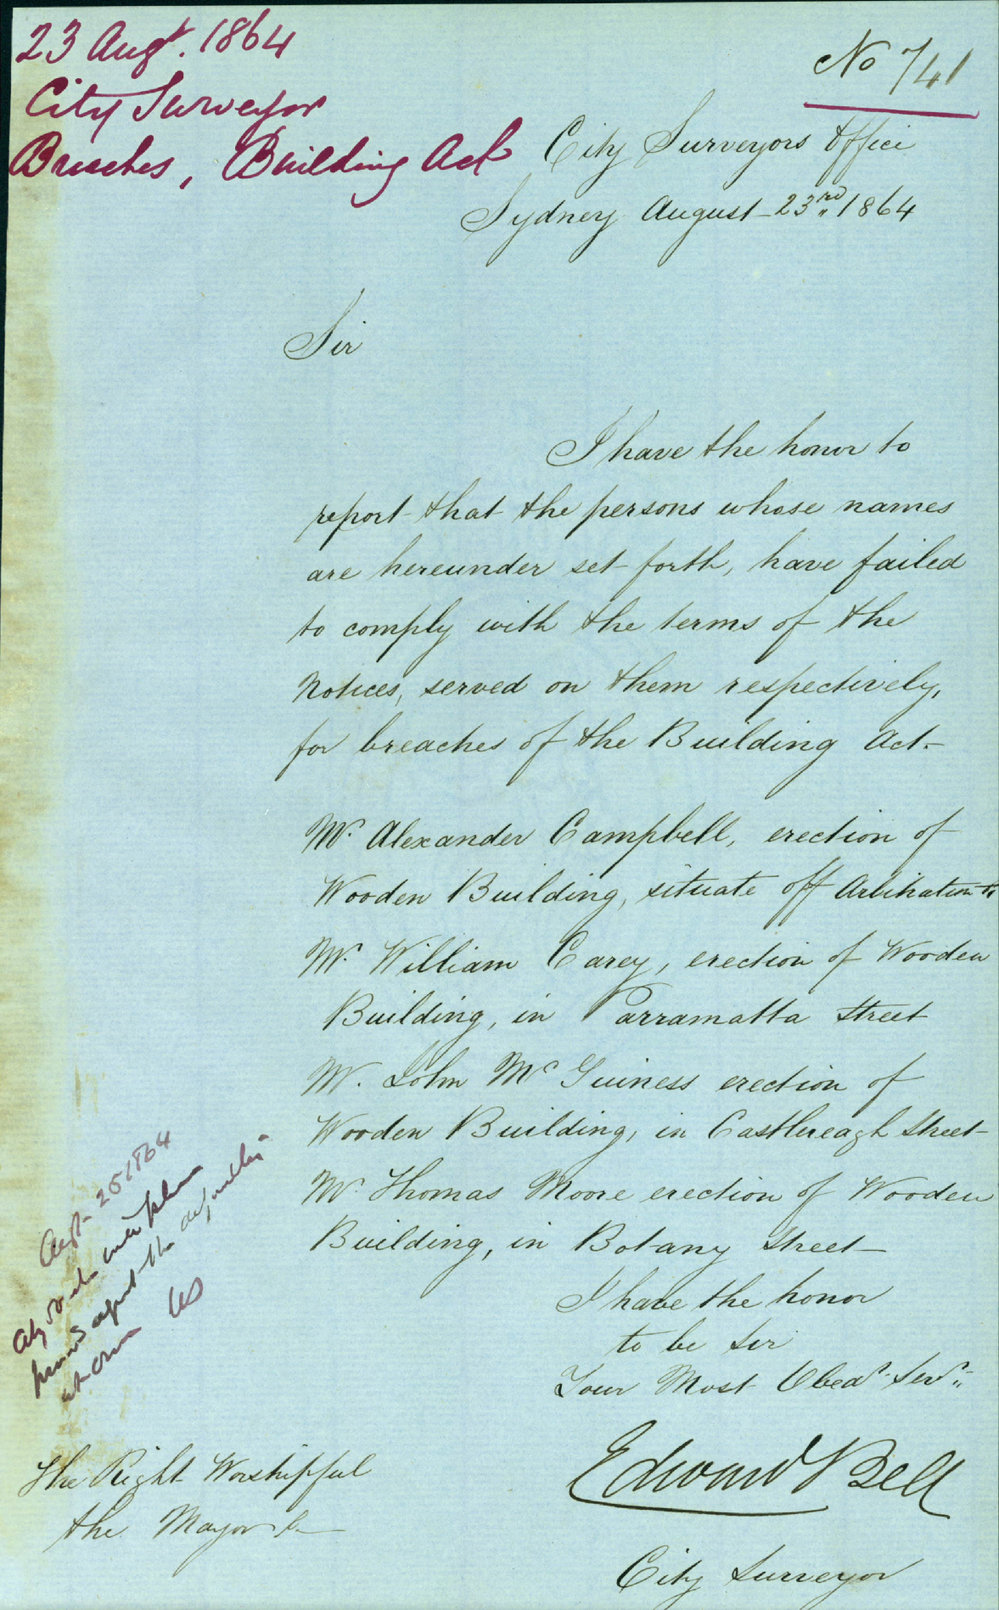 23 Augt. 1864
City Surveyor
Breaches, Building Act
No 741
City Surveyors Office
Sydney August 23rd 1864
Sir
I have the honor to
report that the persons whose names
are hereunder set forth, have failed
to comply with the terms of the
Notices, served on them respectively,
for breaches of the Building Act-
Mr. Alexander Campbell, erection of
Wooden Building, situate off Arbitration
Mr. William Carey, erection of Wooden
Building, in Parramatta Street
Mr. John McGuiness erection of
Wooden Building, in Castlereagh Street
Mr. Thomas Moore erection of Wooden
Building, in Botany Street
I have the honor
to be Sir
Your Most Obedt. Servt.
Edward Bell
City Surveyor
The Right Worshipful
the Mayor
Augt 25 1864